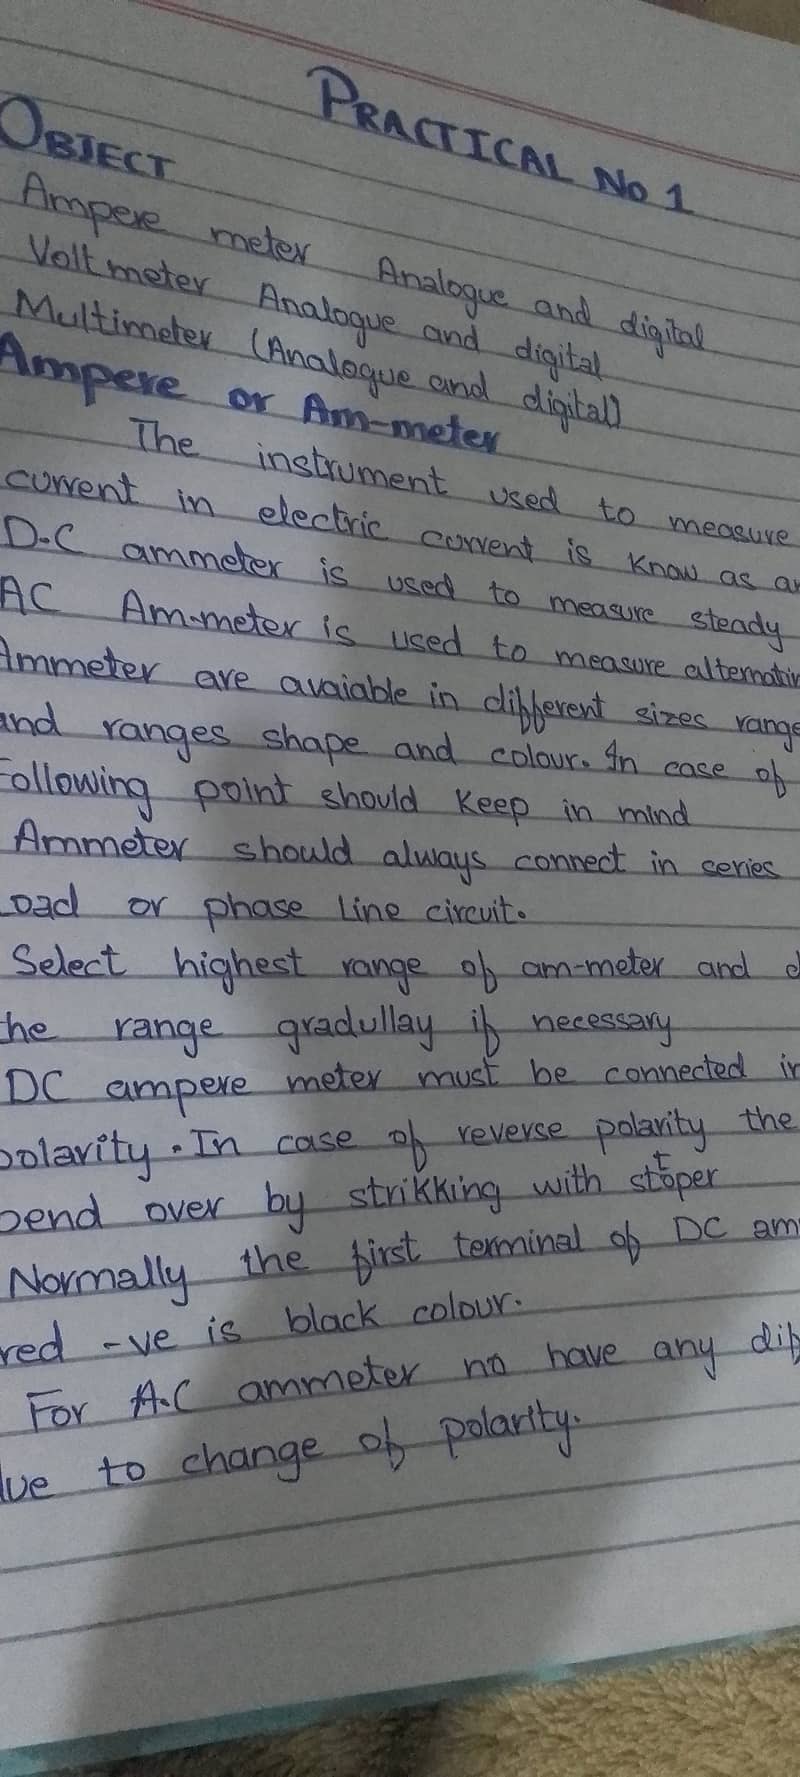 PRACTICAL No 1
OBJECT
Ampere meter Analogue and digital
Voltmeter Analogue and digital
Multimeter (Analogue and digital)
Ampere or Am-meter
The instrument used to measure
current in electric current is know as an
D.C ammeter is used to measure steady
AC Am-meter is used to measure alternativ
Ammeter are avaiable in different sizes range
and ranges shape and colour. In case of
Following point should keep in mind
Ammeter should always connect in series
Load or phase line circuit.
Select highest range of am-meter and d
the range gradullay if necessary
DC ampere meter must be connected in
polarity. In case of reverse polarity the
bend over by strikking with stoper
Normally the first terminal of DC am
red -ve is black colour.
For A.C ammeter no have any dif
due to change of polarity.